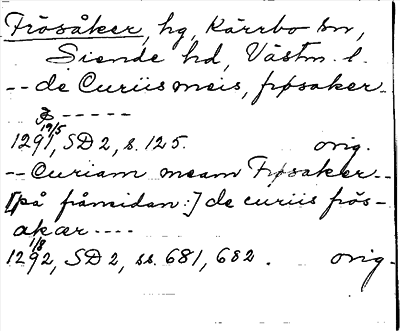 Frösåker, hg, Kärrbo sn,
Siende hd, Västm. l.
-- de Curiis meis, frøsaker
- - - - -
19/5
1291, SD 2, s. 125. orig.
-- Curiam meam Frøsaker --
[på frånsidan:] de curiis frös-
akær ----
1/8
1292, SD 2, ss. 681, 682. orig.